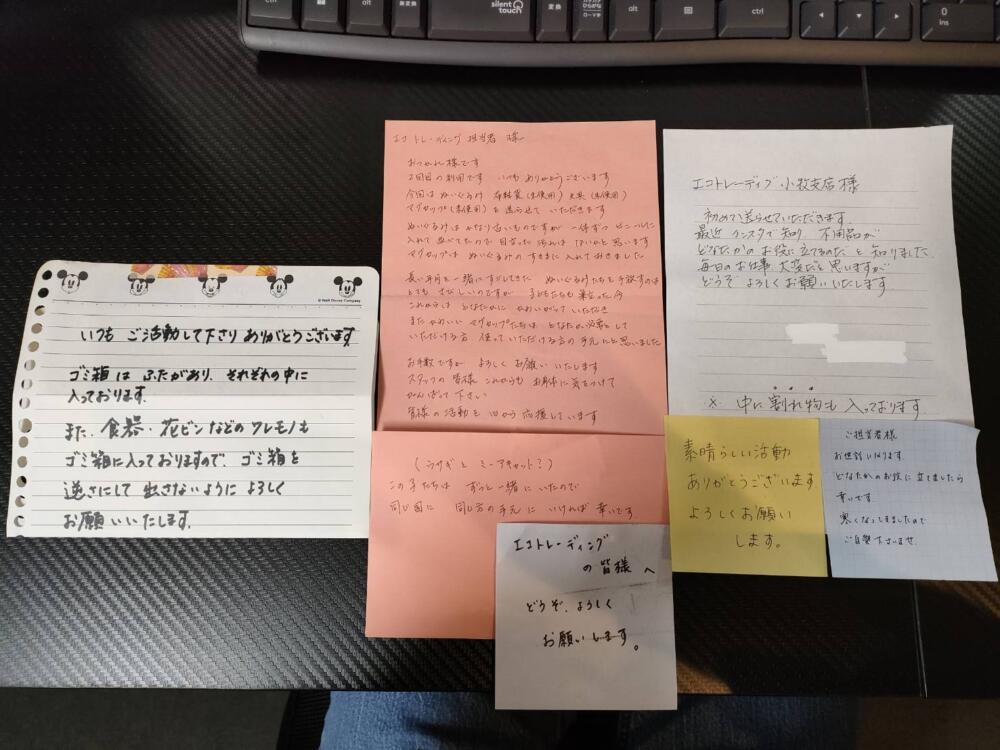 silent touch
変換
alt
ctrl
0
Ins
© Walt Disney Company
いつも ご活動して下さり ありがとうございます
ゴミ箱は ふたがあり、それぞれの中に
入っております。
また、食器・花ビンなどのワレモノも
ゴミ箱に入っておりますので、ゴミ箱を
逆さにして 出さないように よろしく
お願いいたします。
エコトレーディング 担当者 様
おつかれ様です
2回目の利用です いつもありがとうございます
今回は ぬいぐるみ (未使用) 文具 (未使用)
マグカップ(未使用)を送らせて いただきます
ぬいぐるみは かなり古いものですが 一体ずつ
入れて 並べてたので 目立った 汚れは ないかと思います
マグカップは ぬいぐるみの すきまに 入れておきました
長い年月を一緒にすごしてきた ぬいぐるみたちを手放すのは
とても さびしいのですが 子どもたちも 巣立った今
これからは どなたかに かわいがって いただき
また かわいい マグカップたちは どなたか必要として
いただける方 使っていただける方の手元にと思いました
お手数ですが よろしく お願い いたします
スタッフの皆様 これからも お身体に気をつけて
がんばって下さい
皆様の活動を 応援しています
(うさぎと ミーアキャット?)
この子たちは ずっと一緒に いたので
同じ国に 同じ方の手元に いければ 幸いです.
エコトレーディング
の皆様へ
どうぞ、よろしく
お願いします。
エコトレーディング 小牧支店 様
初めて送らせていただきます.
最近 インスタで知り、不用品が
どなたかのお役に立てるのだと知りました.
毎日のお仕事 大変だと思いますが
どうぞ よろしくお願いいたします
※ 中に割れ物も入っております.
素晴らしい活動
ありがとうございます
よろしくお願い
します。
ご担当者様
お世話になります.
どなたかのお役に立てましたら
幸いです
寒くなってきましたので
ご自愛下さいませ.